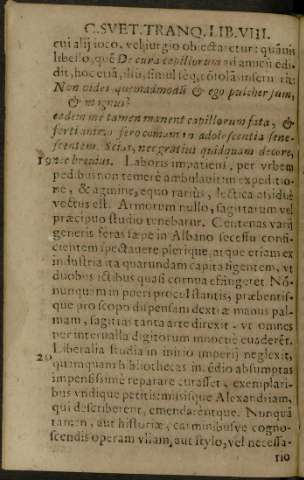 C. SVET. TRANQ. LIB. VIII.
cui alij ioco, vel iurgio obiectaretur: quāuis
libello, quē De cura capillorum ad amicū edi-
dit, hoc etiā, simul seq; cōsolās inseruerit:
Non vides quemadmodū & ego pulcher sum,
& magnus?
eadem me tamen manent capillorum fata, &
forti animo fero comam in adolescentia sene-
scentem. Scias, nec gratius quidquam decore,
19 nec breuius. Laboris impatiens, per vrbem
pedibus non temerè ambulauit: in expeditio-
ne, & agmine, equo rarius, lectica assiduè
vectus est. Armorum nullo, sagittarum vel
præcipuo studio tenebatur. Centenas varij
generis feras sæpe in Albano secessu confi-
cientem spectauere plerique, atque etiam ex
industria ita quarundam capita figentem, vt
duobus ictibus quasi cornua effingeret. Nō-
nunquam in pueri procul stantis, præbentis-
que pro scopo dispansam dextræ manus pal-
mam, sagittas tanta arte direxit, vt omnes
per interualla digitorum innocuè euaderēt.
20 Liberalia studia in initio imperij neglexit,
quamquam bibliothecas incēdio absumptas
impensissimè reparare curasset, exemplari-
bus vndique petitis: missisque Alexandriam,
qui describerent, emendarēntque. Nunquā
tamen, aut historiæ, carminibusve cogno-
scendis operam vllam, aut stylo, vel necessa-
110